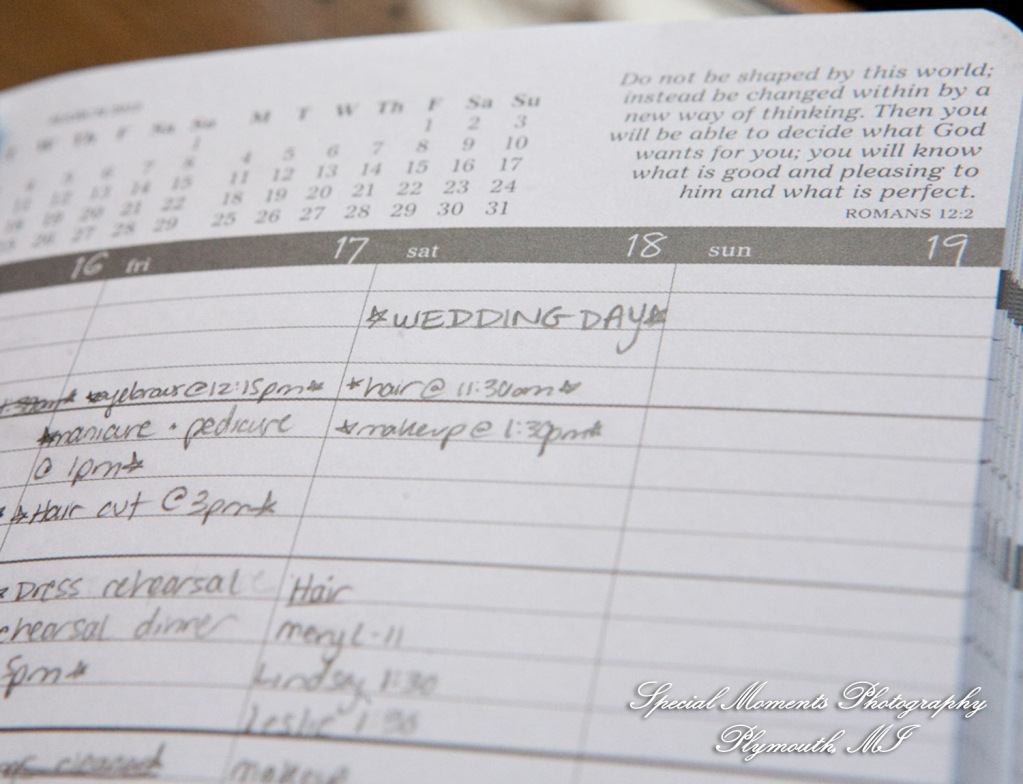 Do not be shaped by this world;
instead be changed within by a
new way of thinking. Then you
will be able to decide what God
wants for you; you will know
what is good and pleasing to
him and what is perfect.
ROMANS 12:2
W Th F Sa Su
1
4 5 6 7 8
11 12 13 14 15
18 19 20 21 22
26 27 28 29
M T W Th F Sa Su
1 2 3
4 5 6 7 8 9 10
11 12 13 14 15 16 17
18 19 20 21 22 23 24
25 26 27 28 29 30 31
16 fri 17 sat 18 sun 19
*WEDDING DAY*
*eyebrows@12:15pm* *hair@ 11:30am*
*manicure + pedicure *makeup@ 1:30pm*
@ 1pm*
*Hair cut @3pm*
*Dress rehearsal Hair
rehearsal dinner meryl-11
5pm* Lindsay 1:30
Leslie 1:30
cleaned makeup
Special Moments Photography
Plymouth, MI